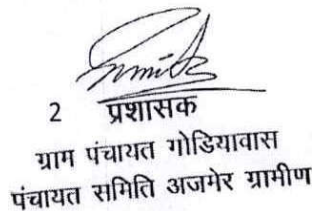 2 प्रशासक
ग्राम पंचायत गोडियावास
पंचायत समिति अजमेर ग्रामीण